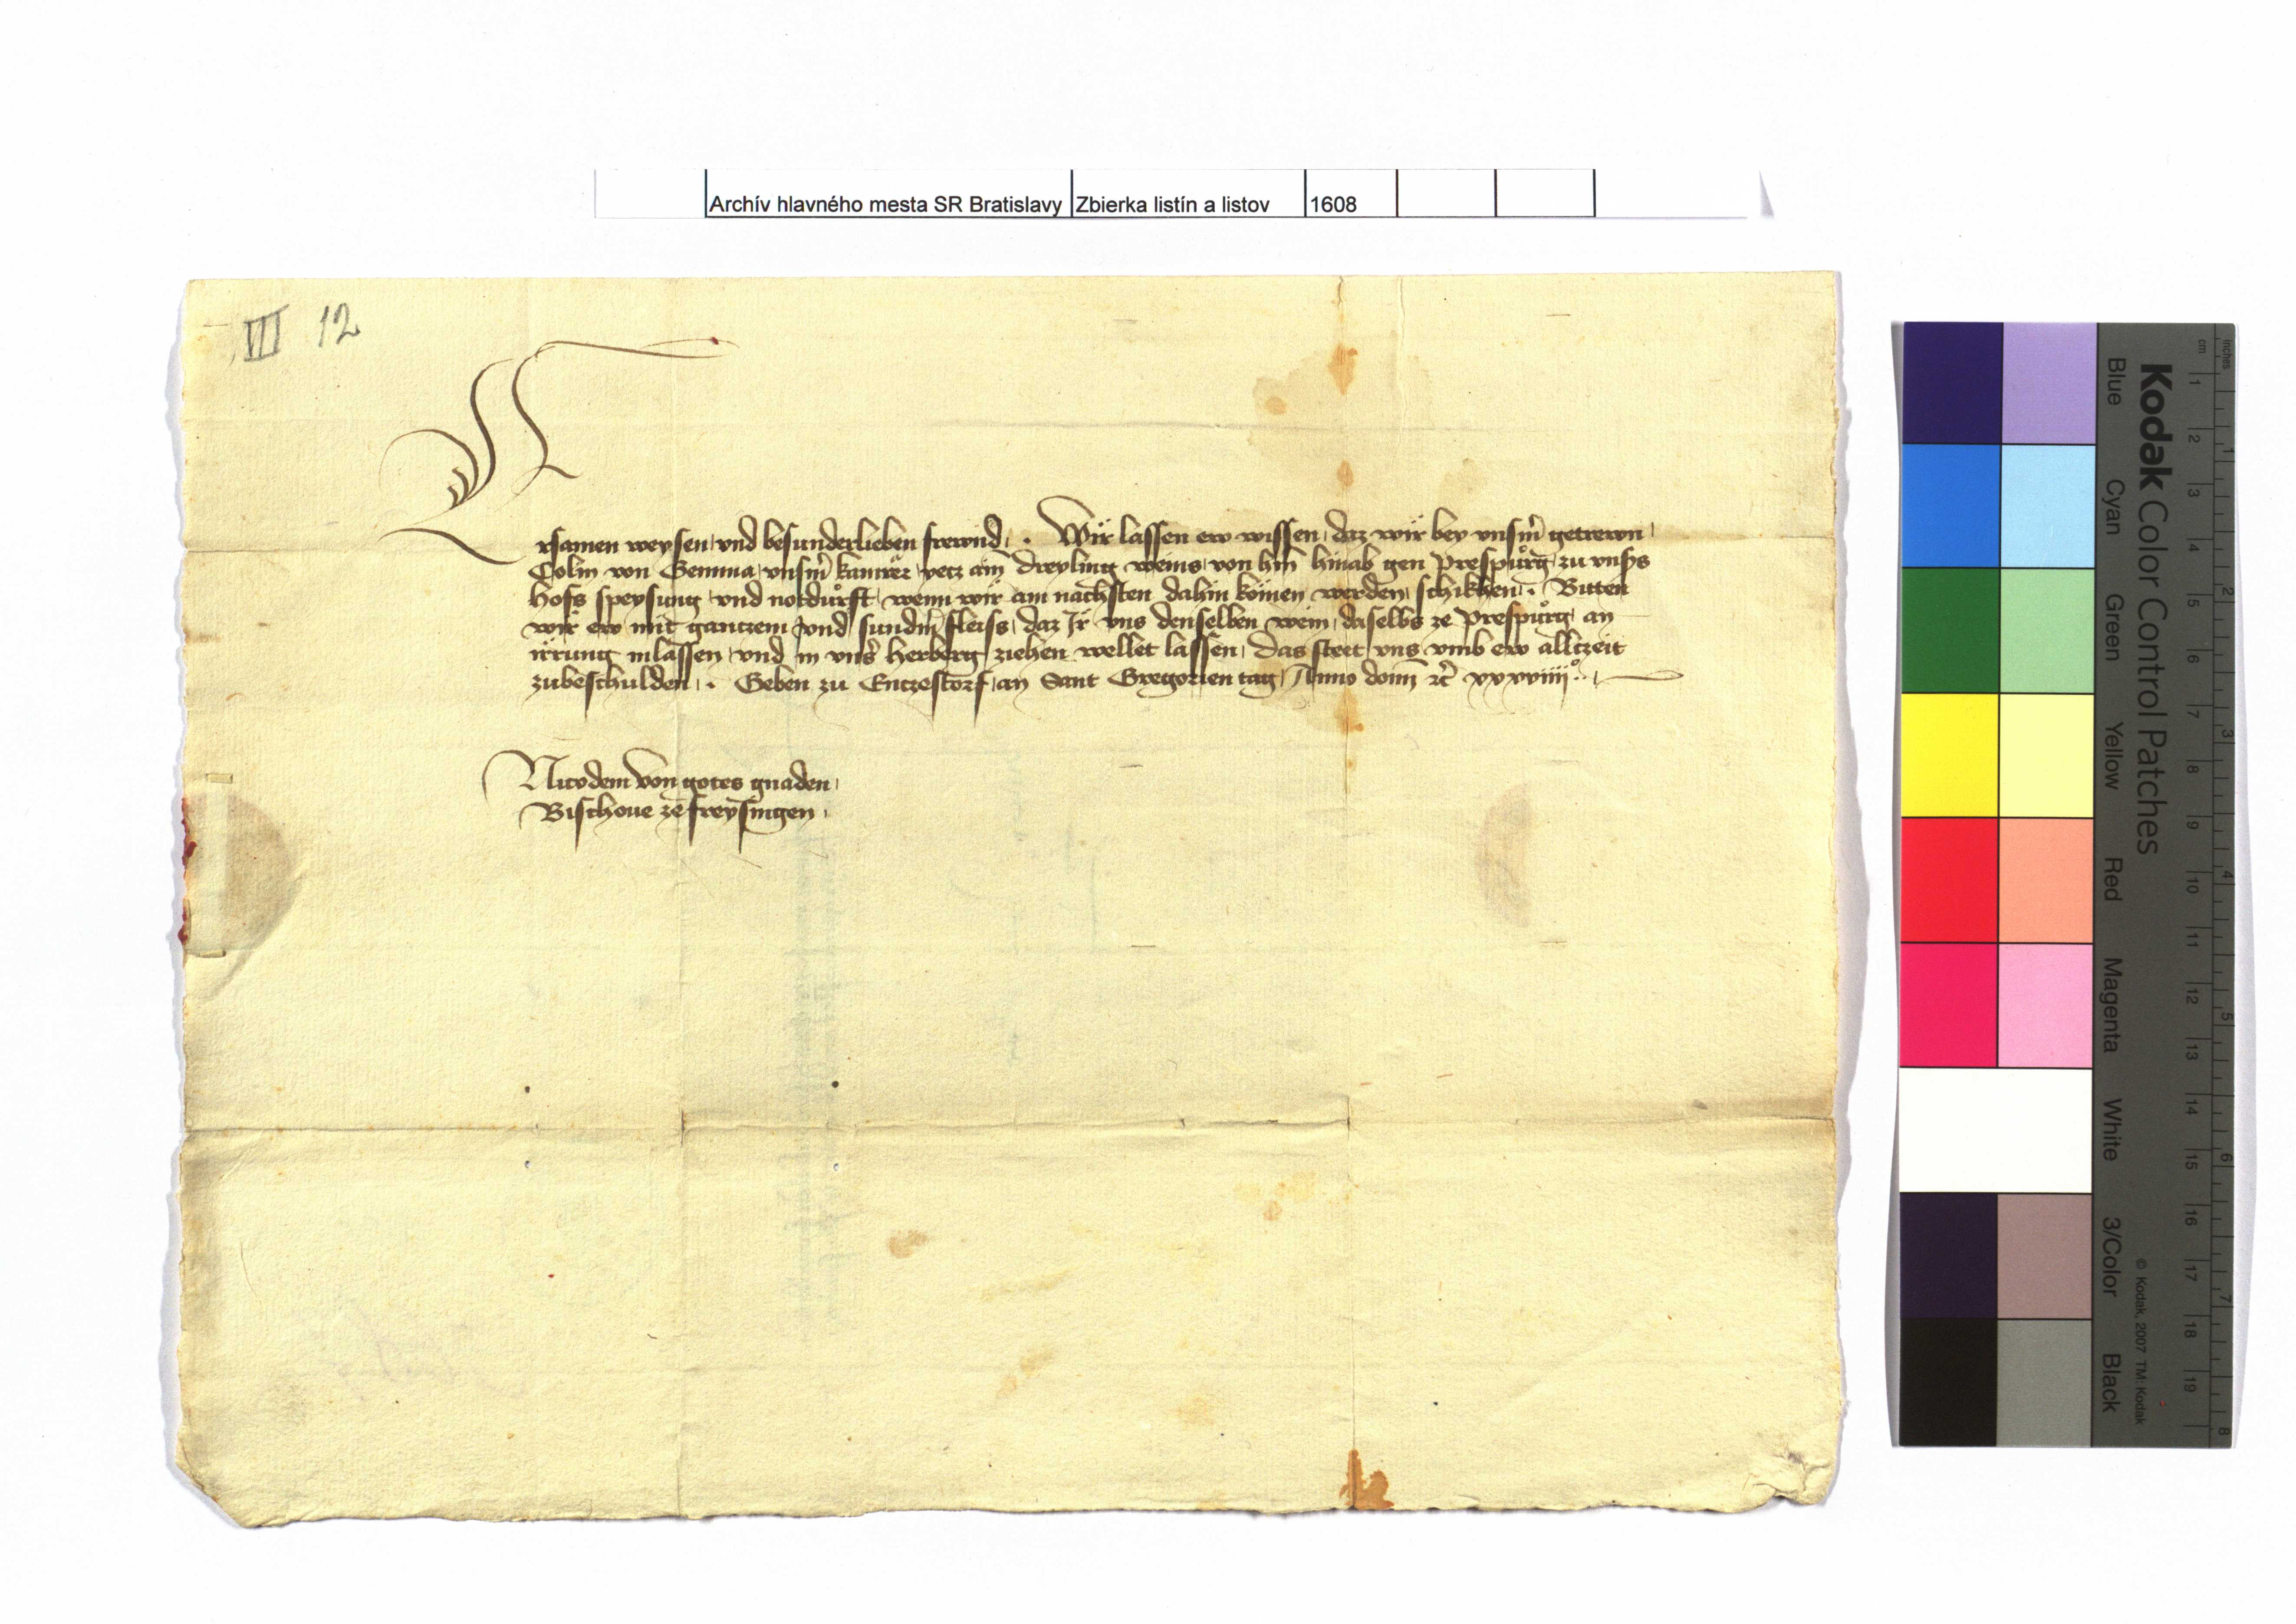 Archív hlavného mesta SR Bratislavy Zbierka listín a listov 1608
VII 12
Ersamen weysen vnd besunderlieben frewnd. Wir lassen ew wissen, daz wir bey vnserm̄ getrewn
Colin von Gemma vnserm̄ kamrer yecz ain dreyling weins von hin hinab gen Prespůrg zu vnsers
hofs speysung vnd notdůrft wenn wir am nachsten dahin kömen werden, schikhen. Bitten
wir ew mit ganczem vnd sundern̄ fleiss, daz Ir vns denselben wein, daselbs ze Prespůrg an
irrung inlassen vnd in vnser herberg ziehen wellet lassen, das steet vns vmb ew allczeit
zubeschulden. Geben zu Enczestorf an Sant Gregorien tag, Anno domī rc̄ xxxviiij°.
Nicodem von gotes gnaden
Bischoue ze freysingen
Kodak Color Control Patches
Blue Cyan Green Yellow Red Magenta White 3/Color Black
© Kodak, 2007 TM: Kodak
inches 1 2 3 4 5 6 7 8
cm 1 2 3 4 5 6 7 8 9 10 11 12 13 14 15 16 17 18 19